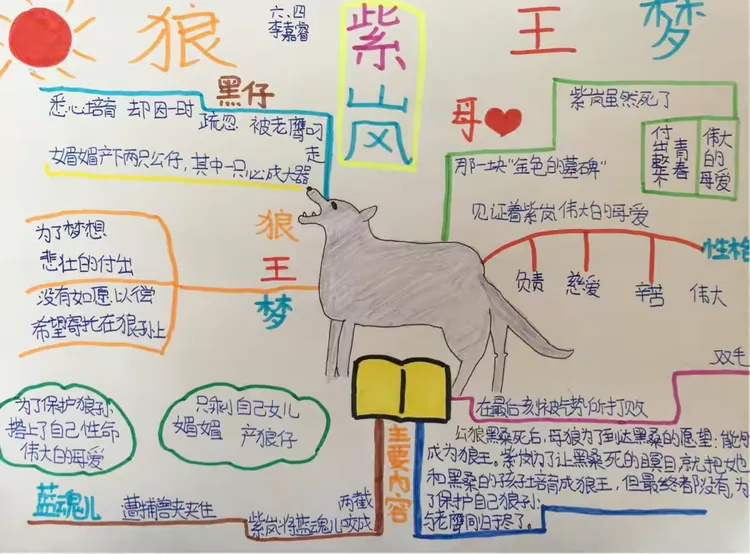 狼
六、四
李嘉睿
紫岚
王
梦
黑仔
悉心培育 却因一时
疏忽 被老鹰叼
走
媚媚产下两只公仔,其中一只必成大器
母
紫岚虽然死了
付出整个
青春
伟大
的
母爱
那一块“金色的墓碑”
见证着紫岚伟大的母爱
为了梦想
悲壮的付出
没有如愿以偿
希望寄托在狼孙上
狼
王
梦
性格
负责
慈爱
辛苦
伟大
双毛
在最后刻被气势所打败
为了保护狼孙
搭上了自己性命
伟大的母爱
只剩自己女儿
媚媚 产狼仔
蓝魂儿
遭捕兽夹夹住
紫岚将蓝魂儿咬成
两截
主要内容
公狼黑桑死后,母狼为了到达黑桑的愿望:能
成为狼王。紫岚为了让黑桑死的瞑目就把她
和黑桑的孩子培育成狼王,但最终都没有,为
了保护自己狼孙:
与老鹰同归于尽了。